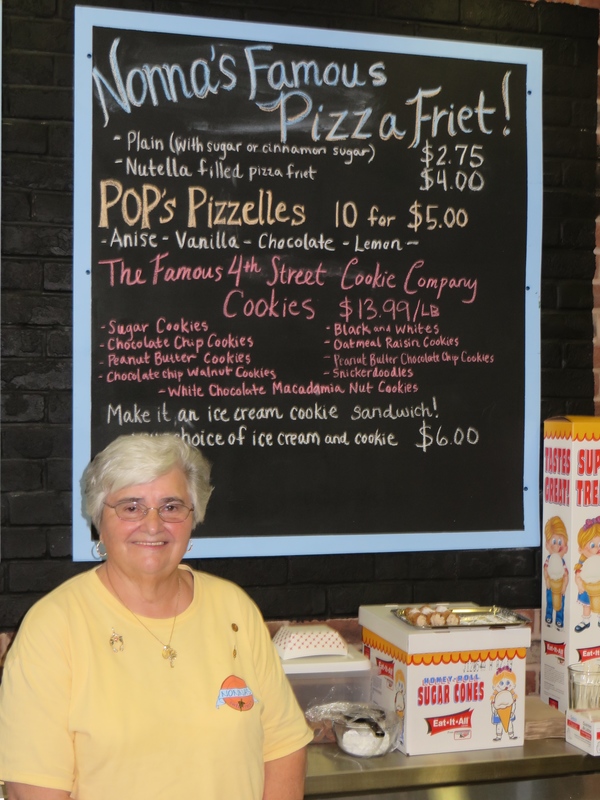 Nonna's Famous
Pizza Friet!
- Plain (with sugar or cinnamon sugar) $2.75
- Nutella filled pizza friet $4.00
POP's Pizzelles 10 for $5.00
- Anise - Vanilla - Chocolate - Lemon -
The Famous 4th Street Cookie Company
Cookies $13.99/LB
- Sugar Cookies
- Chocolate Chip Cookies
- Peanut Butter Cookies
- Chocolate chip Walnut Cookies
- Black and Whites
- Oatmeal Raisin Cookies
- Peanut Butter Chocolate Chip Cookies
- Snickerdoodles
- White Chocolate Macadamia Nut Cookies
Make it an ice cream cookie sandwich!
choice of ice cream and cookie $6.00
TASTES GREAT!
SUP
TRE
Eat-It-
Eat-It-
HONEY-ROLL
SUGAR CONES
Eat-It-All